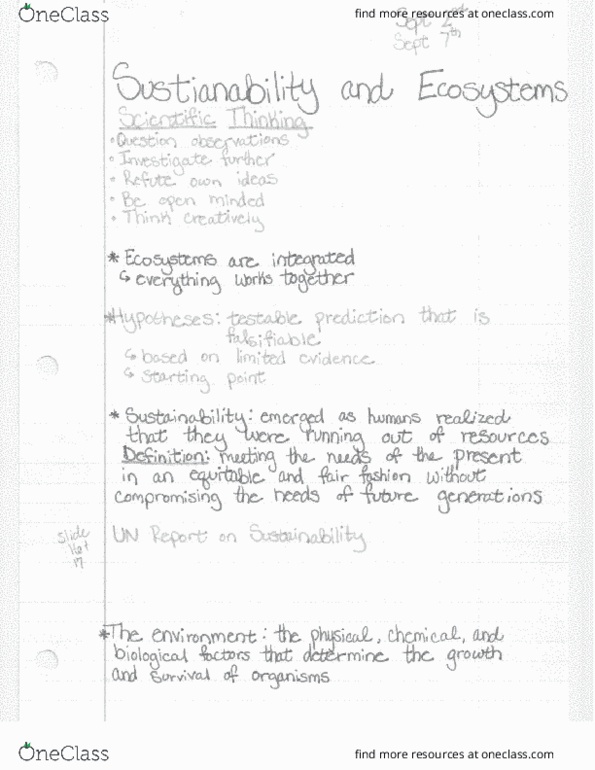 OneClass
find more resources at oneclass.com
Sept 2nd
Sept 7th
Sustianability and Ecosystems
Scientific Thinking
• Question observations
• Investigate further
• Refute own ideas
• Be open minded
• Think creatively
* Ecosystems are integrated
↳ everything works together
*Hypotheses: testable prediction that is
falsifiable
↳ based on limited evidence
↳ starting point
* Sustainability: emerged as humans realized
that they were running out of resources
Definition: meeting the needs of the present
in an equitable and fair fashion without
compromising the needs of future generations
slide
16+
17
UN Report on Sustainability
*The environment: the physical, chemical, and
biological factors that determine the growth
and survival of organisms
OneClass
find more resources at oneclass.com